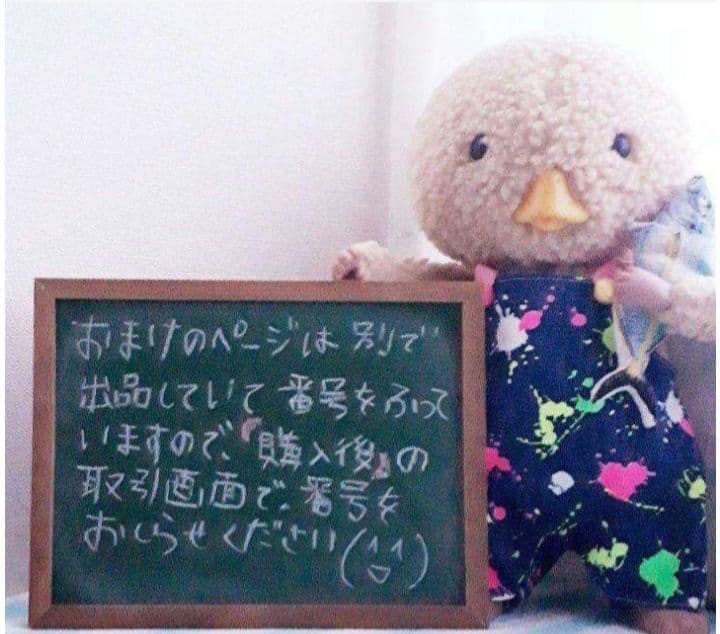 おまけのページは 別で
出品していて 番号をふって
いますので、『購入後』の
取引画面で、番号を
おしらせください(^▽^)